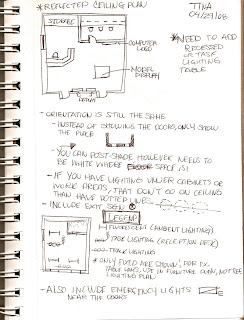 *REFLECTED CEILING PLAN
TTNA
04/29/08
STORAGE
*NEED TO ADD
RECESSED
OR TASK
LIGHTING
TABLE
COMPUTER
LOGO
MODEL
DISPLAY
DISPLAY
- ORIENTATION IS STILL THE SAME
- INSTEAD OF SHOWING THE DOORS, ONLY SHOW
THE PLACE
- YOU CAN POST-SHADE HOWEVER NEEDS TO
BE WHITE WHERE SPACE IS!
- IF YOU HAVE LIGHTING UNDER CABINETS OR
WORK AREAS, THAT DON'T GO ON CEILING
THAN HAVE DOTTED LINES.
- INCLUDE EXIT SIGN
LEGEND
FLUORESCENT (AMBIENT LIGHTING)
TASK LIGHTING (RECEPTION DESK)
TRACK LIGHTING
* ONLY FIXED ARE SHOWN, FOR EX.
TABLE LAMPS, USE IN FURNITURE PLAN, NOT REF
LIGHTING PLAN
- ALSO INCLUDE EMERGENCY LIGHTS
NEAR THE DOORS